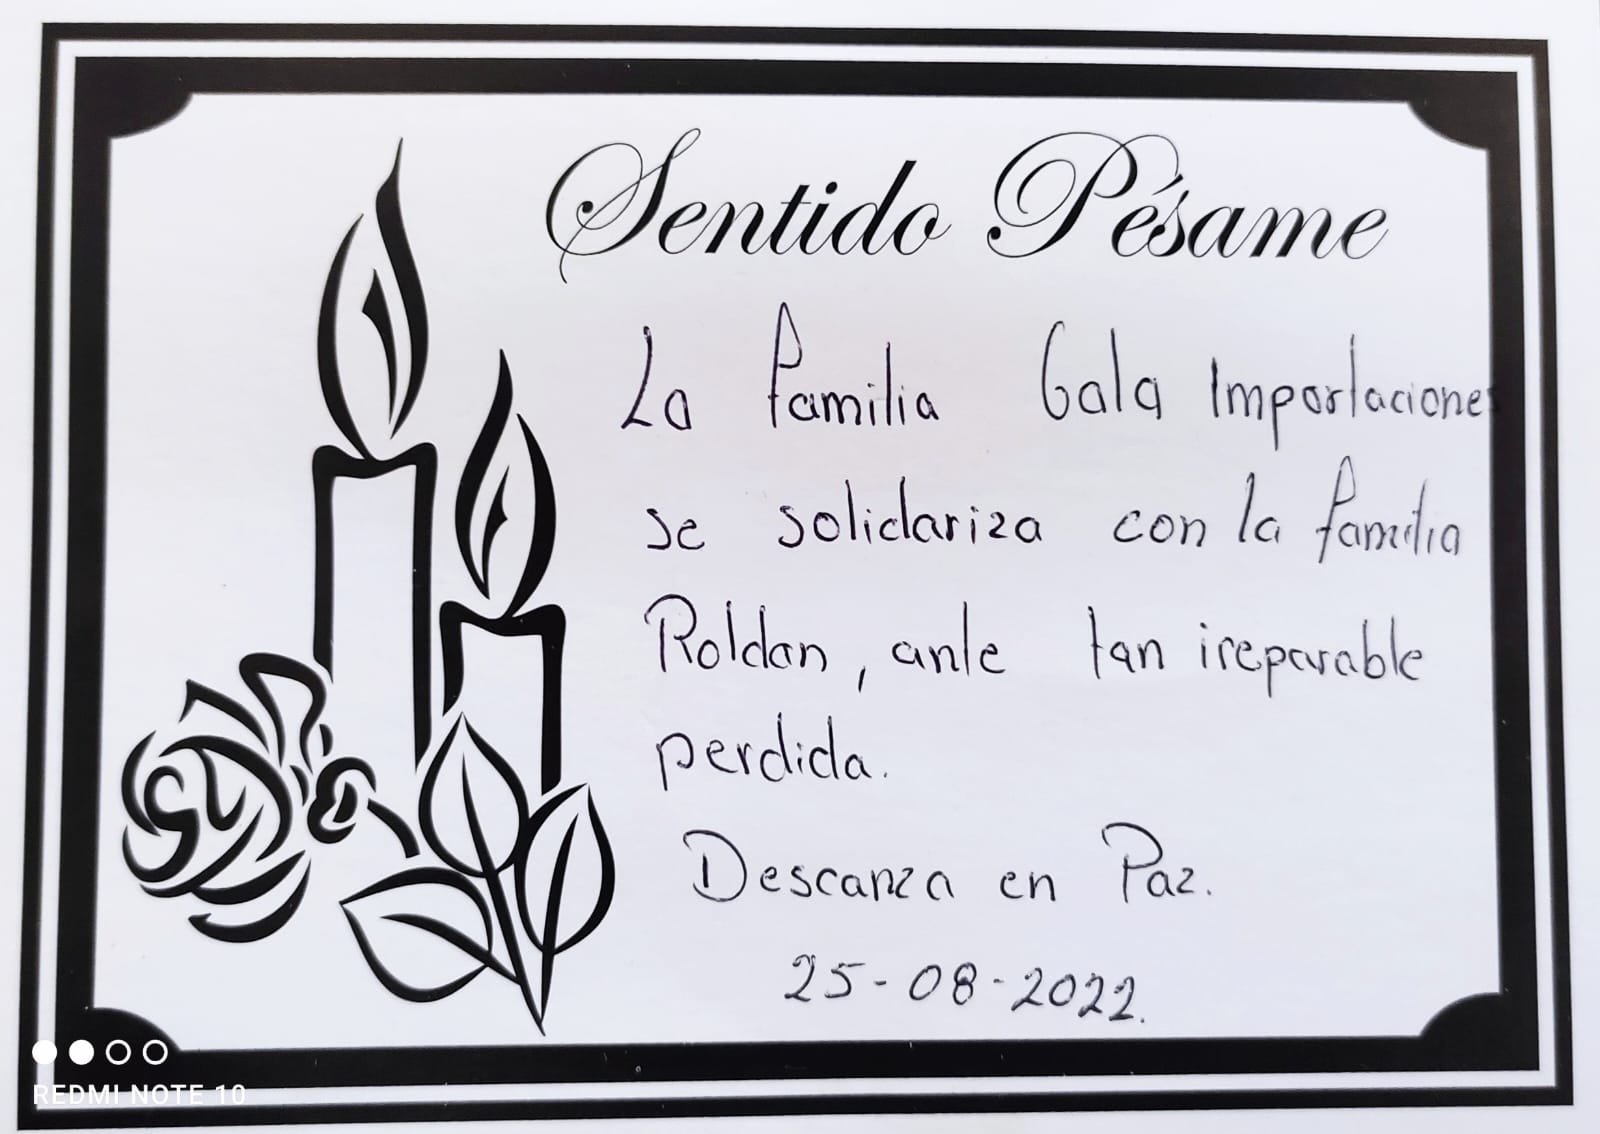 Sentido Pésame
La familia Gala Importaciones
se solidariza con la familia
Roldan, ante tan ireparable
perdida.
Descanza en Paz.
25-08-2022.
REDMI NOTE 10